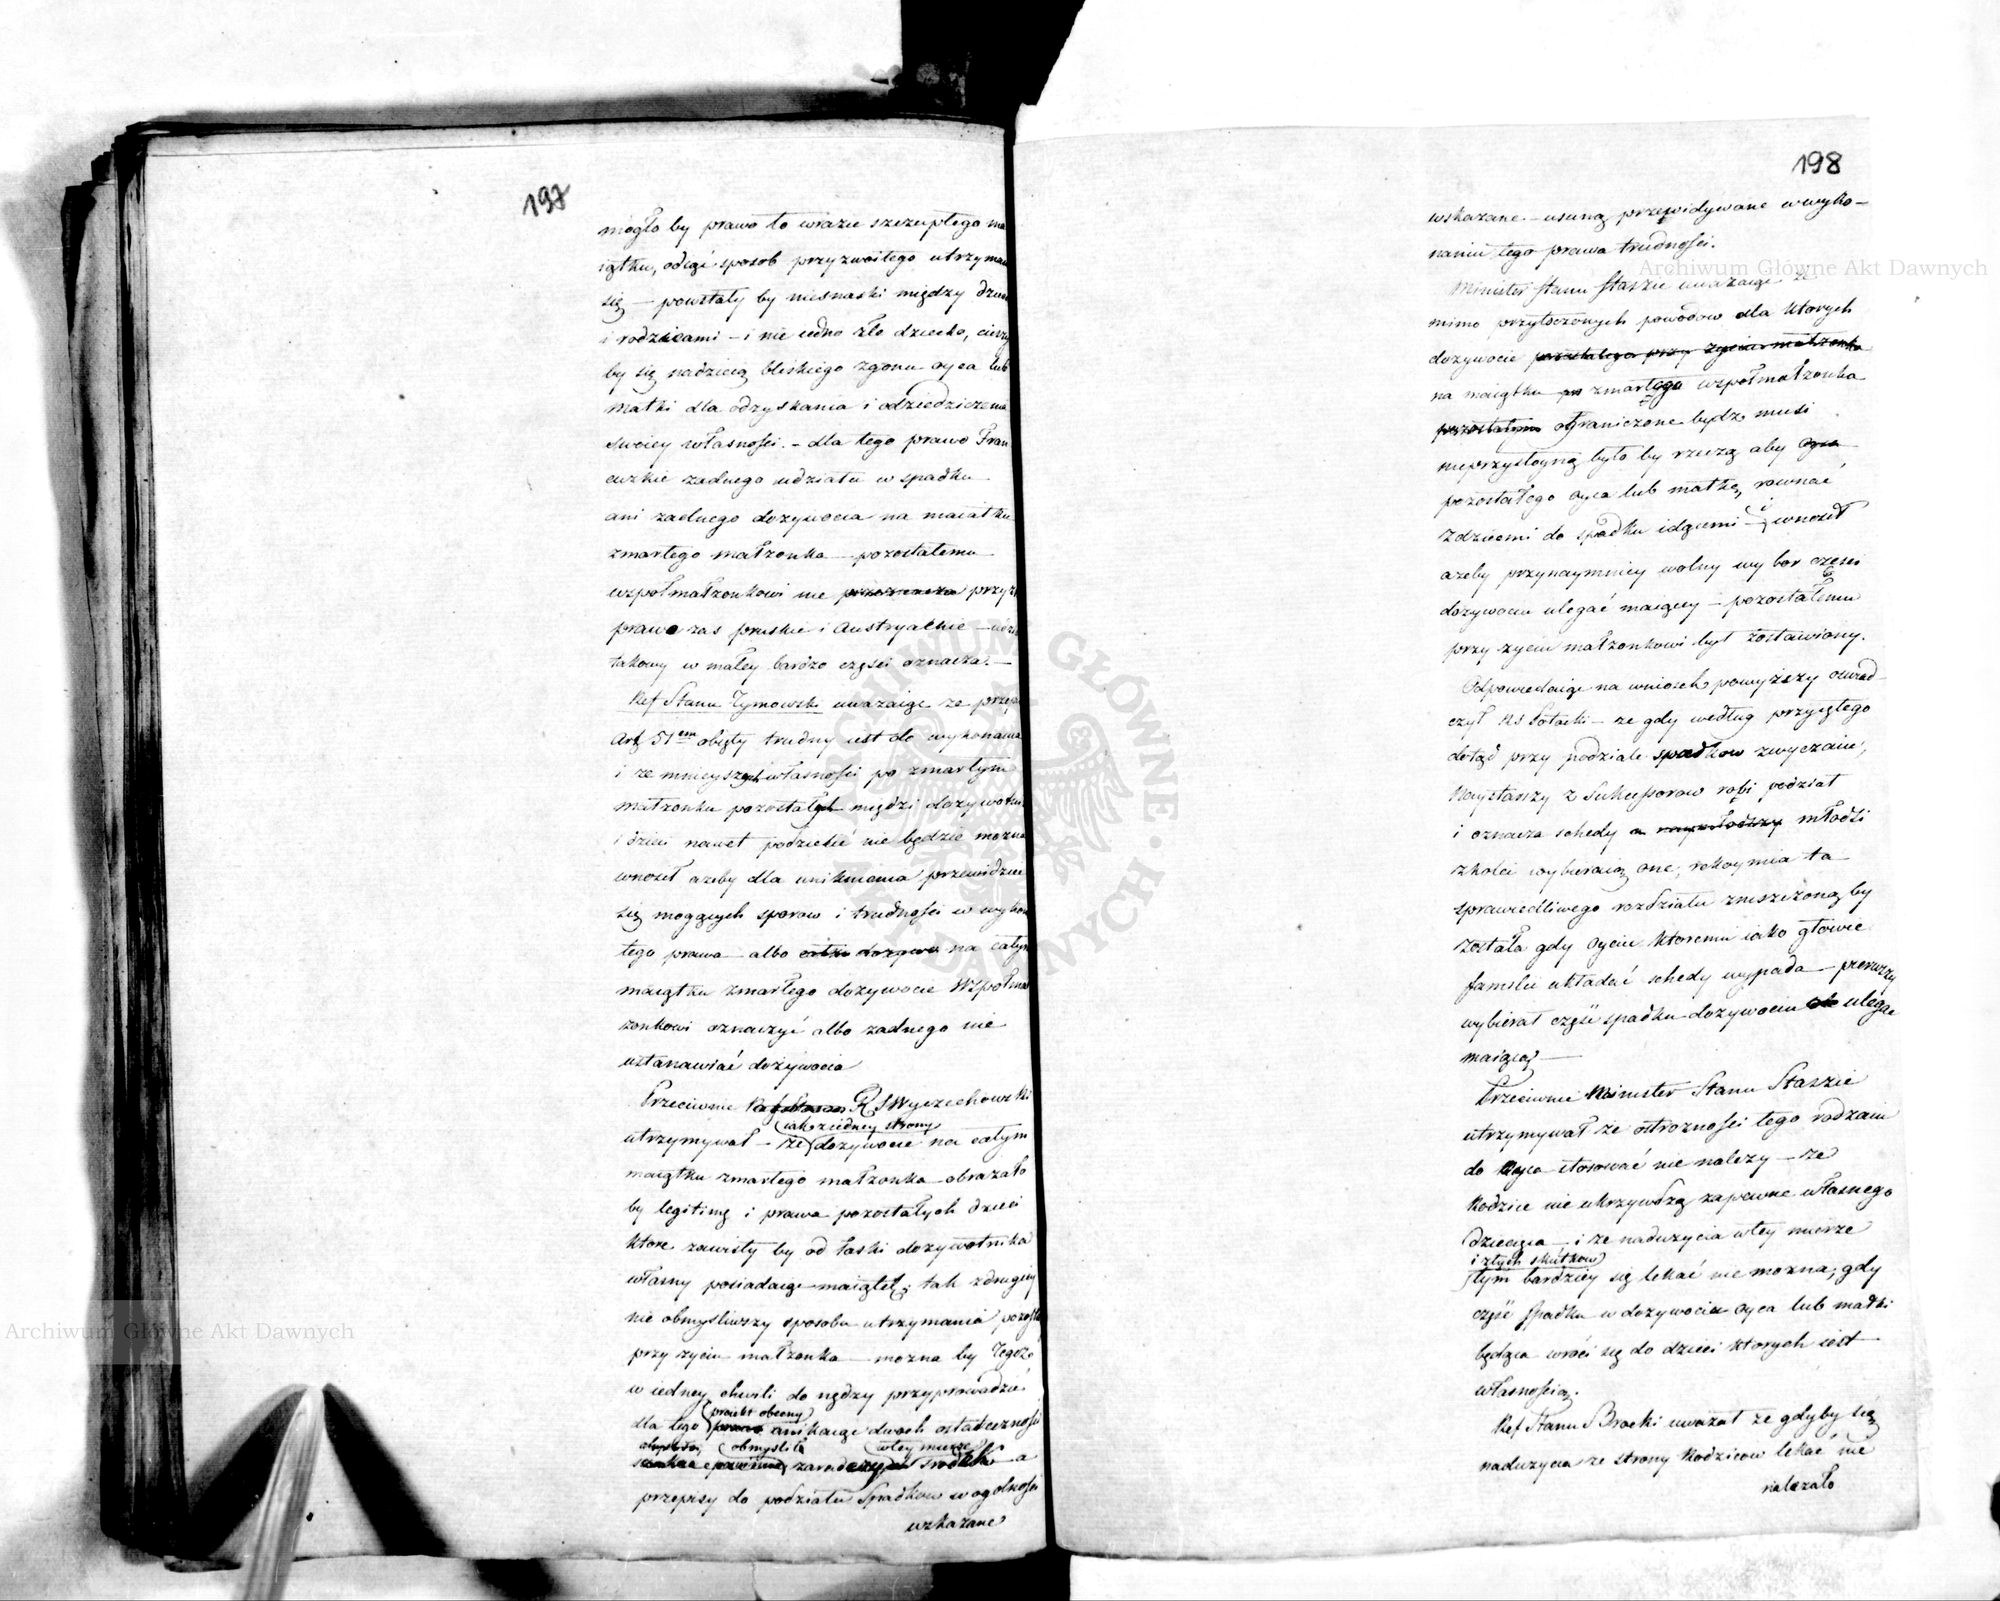 197
mogło by prawo to wrazie szczupłego ma
iątku, odiąć sposob przyzwoitego utrzyman
się — powstały by niesnaski między dzie
i rodzicami — i nie iedno złe dziecko, cieszy
by się nadzieią bliskiego zgonu oyca lub
matki dla odzyskania i odziedziczenia
swoiey własności. — dla tego prawo Fran
cuzkie zadnego udziału w spadku
ani zadnego dozywocia na maiątku
zmarłego małzonka pozostałemu
wspołmałzonkowi nie przyz
prawo zas pruskie i Austryackie —
takowy w małey bardzo części oznacza. —
Ref Stanu Tymowski uwazaiąc ze przep
Art 51em obięty trudny iest do wykonania
i ze mnieyszych własności po zmarłym
małzonku pozostałych między dozywotni
i dzieci nawet podzielić nie będzie mozna
wnosił azeby dla uniknienia przewidzie
się mogących sporow i trudności w wykon
tego prawa albo na całym
maiątku zmarłego dozywocie Wspołmał
zonkowi oznaczyć albo zadnego nie
ustanawiać dozywocia
Przeciwnie RS Wyczechowski
iak z iedney strony
utrzymywał — ze dozywocie na całym
maiątku zmarłego małzonka obrazało
by legitimę i prawa pozostałych dzieci
ktore zawisły by od łaski dozywotnika
własny posiadaiąc maiątek; tak z drugiey
nie obmysliwszy sposobu utrzymania pozosta
przy zyciu małzonka — mozna by Tegoz
w iedney chwili do nędzy przyprowadzić
proiekt obecny
dla tego unikaiąc dwoch ostateczności
obmyslił w tey mierze
zaradcze środki a
przepisy do podziału Spadkow w ogolności
wskazane
198
wskazane — usuną przewidywane w wyko-
naniu tego prawa trudności.
Minister Stanu Staszic uwazaiąc ze
mimo przytoczonych powodow dla ktorych
dozywocie pozostałego przy zyciu małzonka
na maiątku zmarłego wspołmałzonka
pozostałym ograniczone bydz musi
nieprzystoyną było by rzeczą aby oyca
pozostałego oyca lub matkę, rownać
z dziecmi do spadku idącemi — i wnosił
azeby przynaymniey wolny wybor części
dozywociu ulegać maiącey — pozostałemu
przy zyciu małzonkowi był zostawiony.
Odpowiadaiąc na wniosek powyzszy oswiad
czył RS Potocki — ze gdy według przyiętego
dotąd przy podziale spadkow zwyczaiu,
Naystarszy z Sukcessorow robi podział
i oznacza schedy a naymłodszy młodsi
z kolei wybieraią one, rekoymia ta
sprawiedliwego rozdziału zniszczoną by
została gdy Oyciec ktoremu iako głowie
familii układać schedy wypada — pierwszy
wybierał część spadku dozywociu ulegać
maiącą —
Przeciwnie Minister Stanu Staszic
utrzymywał ze ostrozności tego rodzaiu
do Oyca stosować nie nalezy — ze
Rodzice nie ukrzywdzą zapewne własnego
dziecięcia — i ze naduzycia w tey mierze
i złych skutkow
tym bardziey się lekać nie mozna; gdy
część Spadku w dozywociu oyca lub matki
będąca wroci się do dzieci ktorych iest
własnością.
Ref Stanu Brocki uwazał ze gdyby się
naduzycia ze strony Rodzicow lekać nie
nalezało